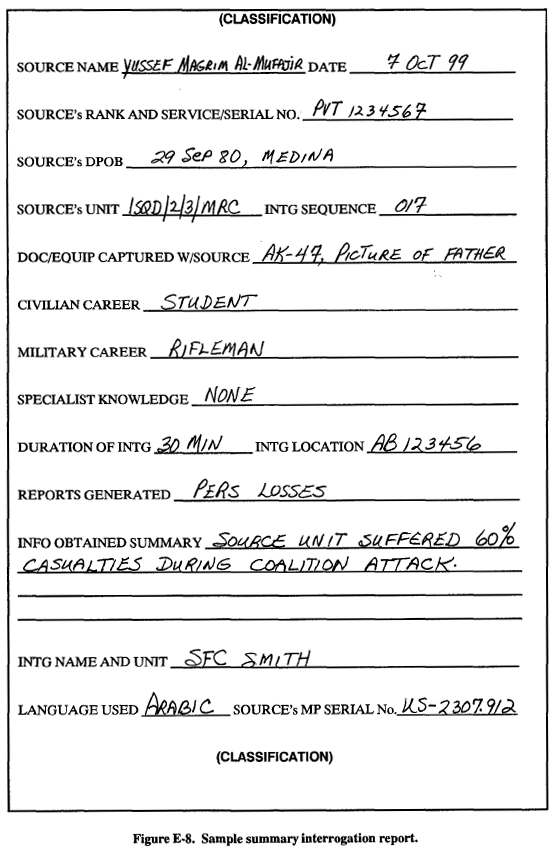 (CLASSIFICATION)
SOURCE NAME YUSSEF MAGRIM AL-MUFFAJIR DATE 7 OCT 99
SOURCE's RANK AND SERVICE/SERIAL NO. PVT 1234567
SOURCE's DPOB 29 SEP 80, MEDINA
SOURCE's UNIT 1SQD/2/3/MRC INTG SEQUENCE 017
DOC/EQUIP CAPTURED W/SOURCE AK-47, PICTURE OF FATHER
CIVILIAN CAREER STUDENT
MILITARY CAREER RIFLEMAN
SPECIALIST KNOWLEDGE NONE
DURATION OF INTG 30 MIN INTG LOCATION AB 123456
REPORTS GENERATED PERS LOSSES
INFO OBTAINED SUMMARY SOURCE UNIT SUFFERED 60%
CASUALTIES DURING COALITION ATTACK.
INTG NAME AND UNIT SFC SMITH
LANGUAGE USED ARABIC SOURCE's MP SERIAL No. US-2307.912
(CLASSIFICATION)
Figure E-8. Sample summary interrogation report.